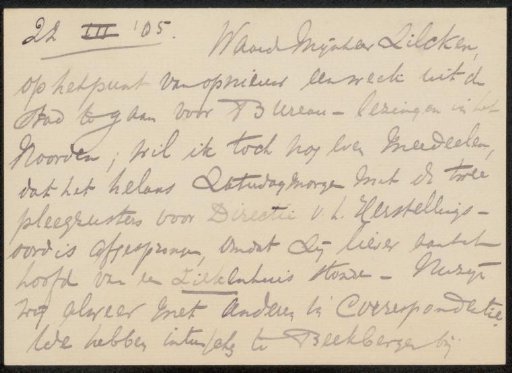 22 III '05.
Waarde Mijnheer Zilcken,
op het punt van opnieuw een week uit de
stad te gaan voor Bureau-lezingen in het
Noorden, wil ik toch nog even meedeelen,
dat het helaas Zaterdagmorgen met de twee
pleegzusters voor Directie v. h. Herstellings-
oord is afgesprongen, omdat zij liever aan het
hoofd van een Ziekenhuis stonden -
wij alweer met anderen in Correspondentie.
We hebben te Beekbergen bij